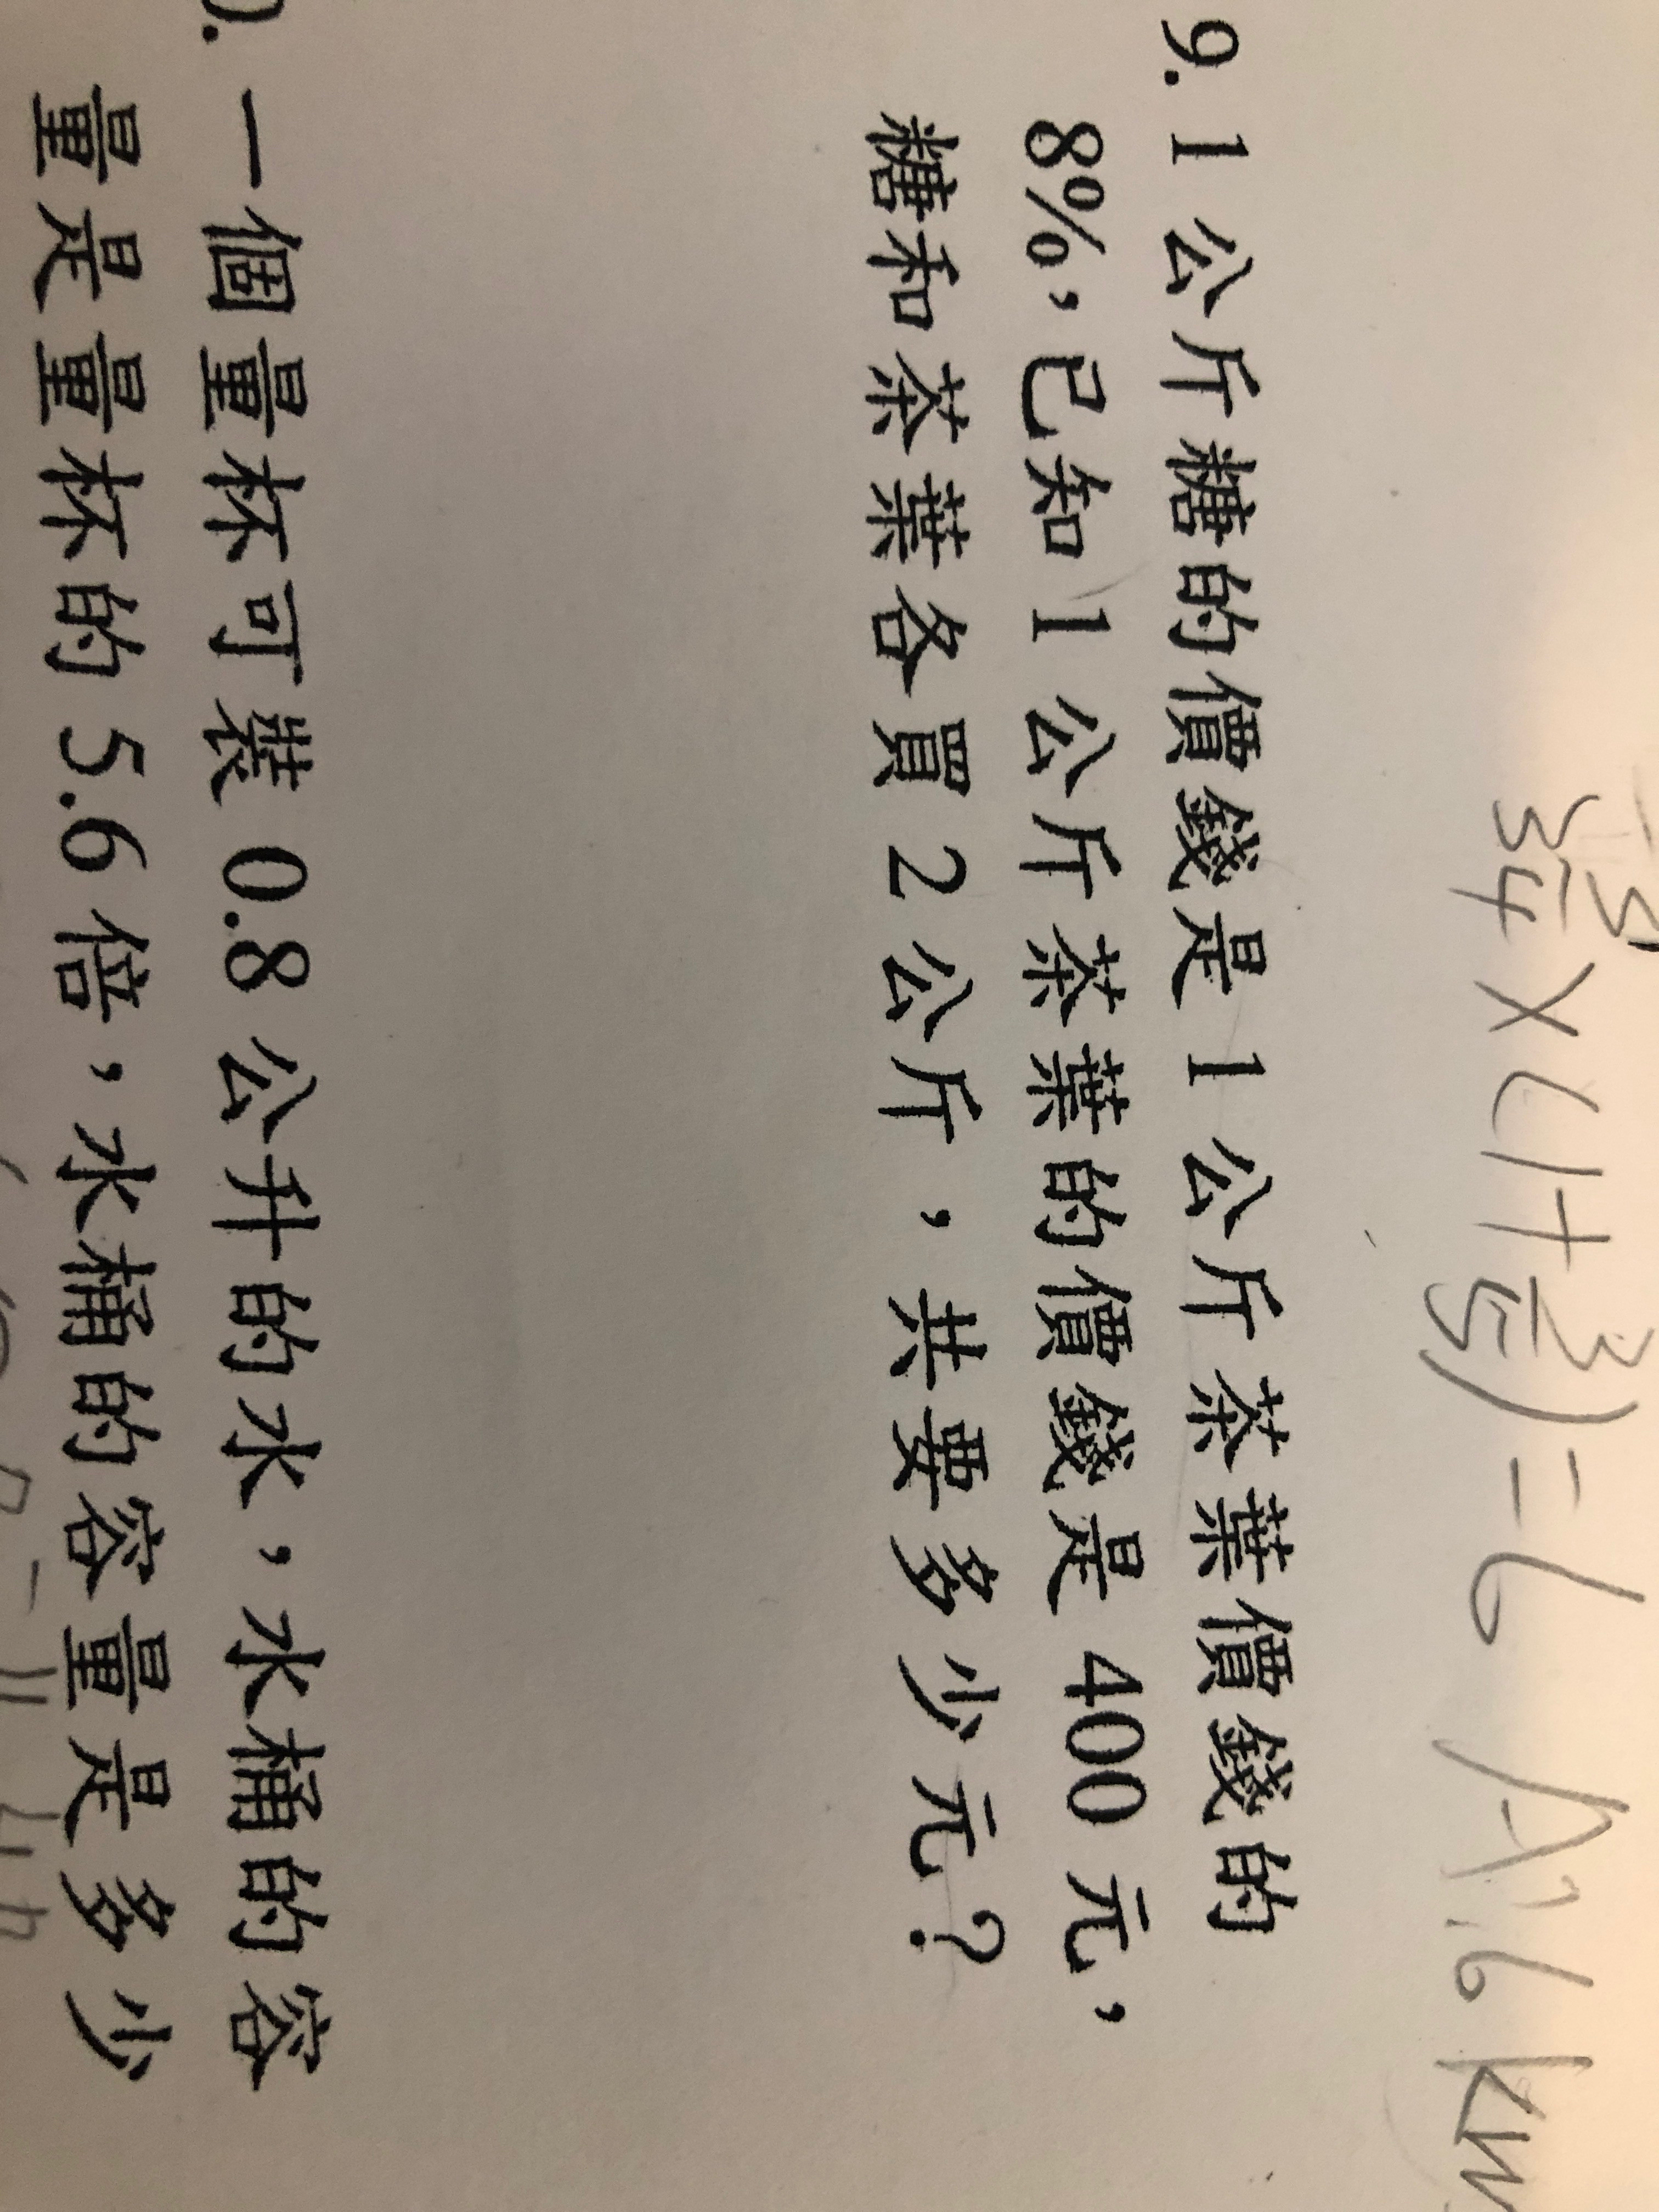 × (1 + 3/5) = 6 A: 6 km
9. 1 公斤糖的價錢是 1 公斤茶葉價錢的
8%，已知 1 公斤茶葉的價錢是 400 元，
糖和茶葉各買 2 公斤，共要多少元？
0. 一個量杯可裝 0.8 公升的水，水桶的容
量是量杯的 5.6 倍，水桶的容量是多少